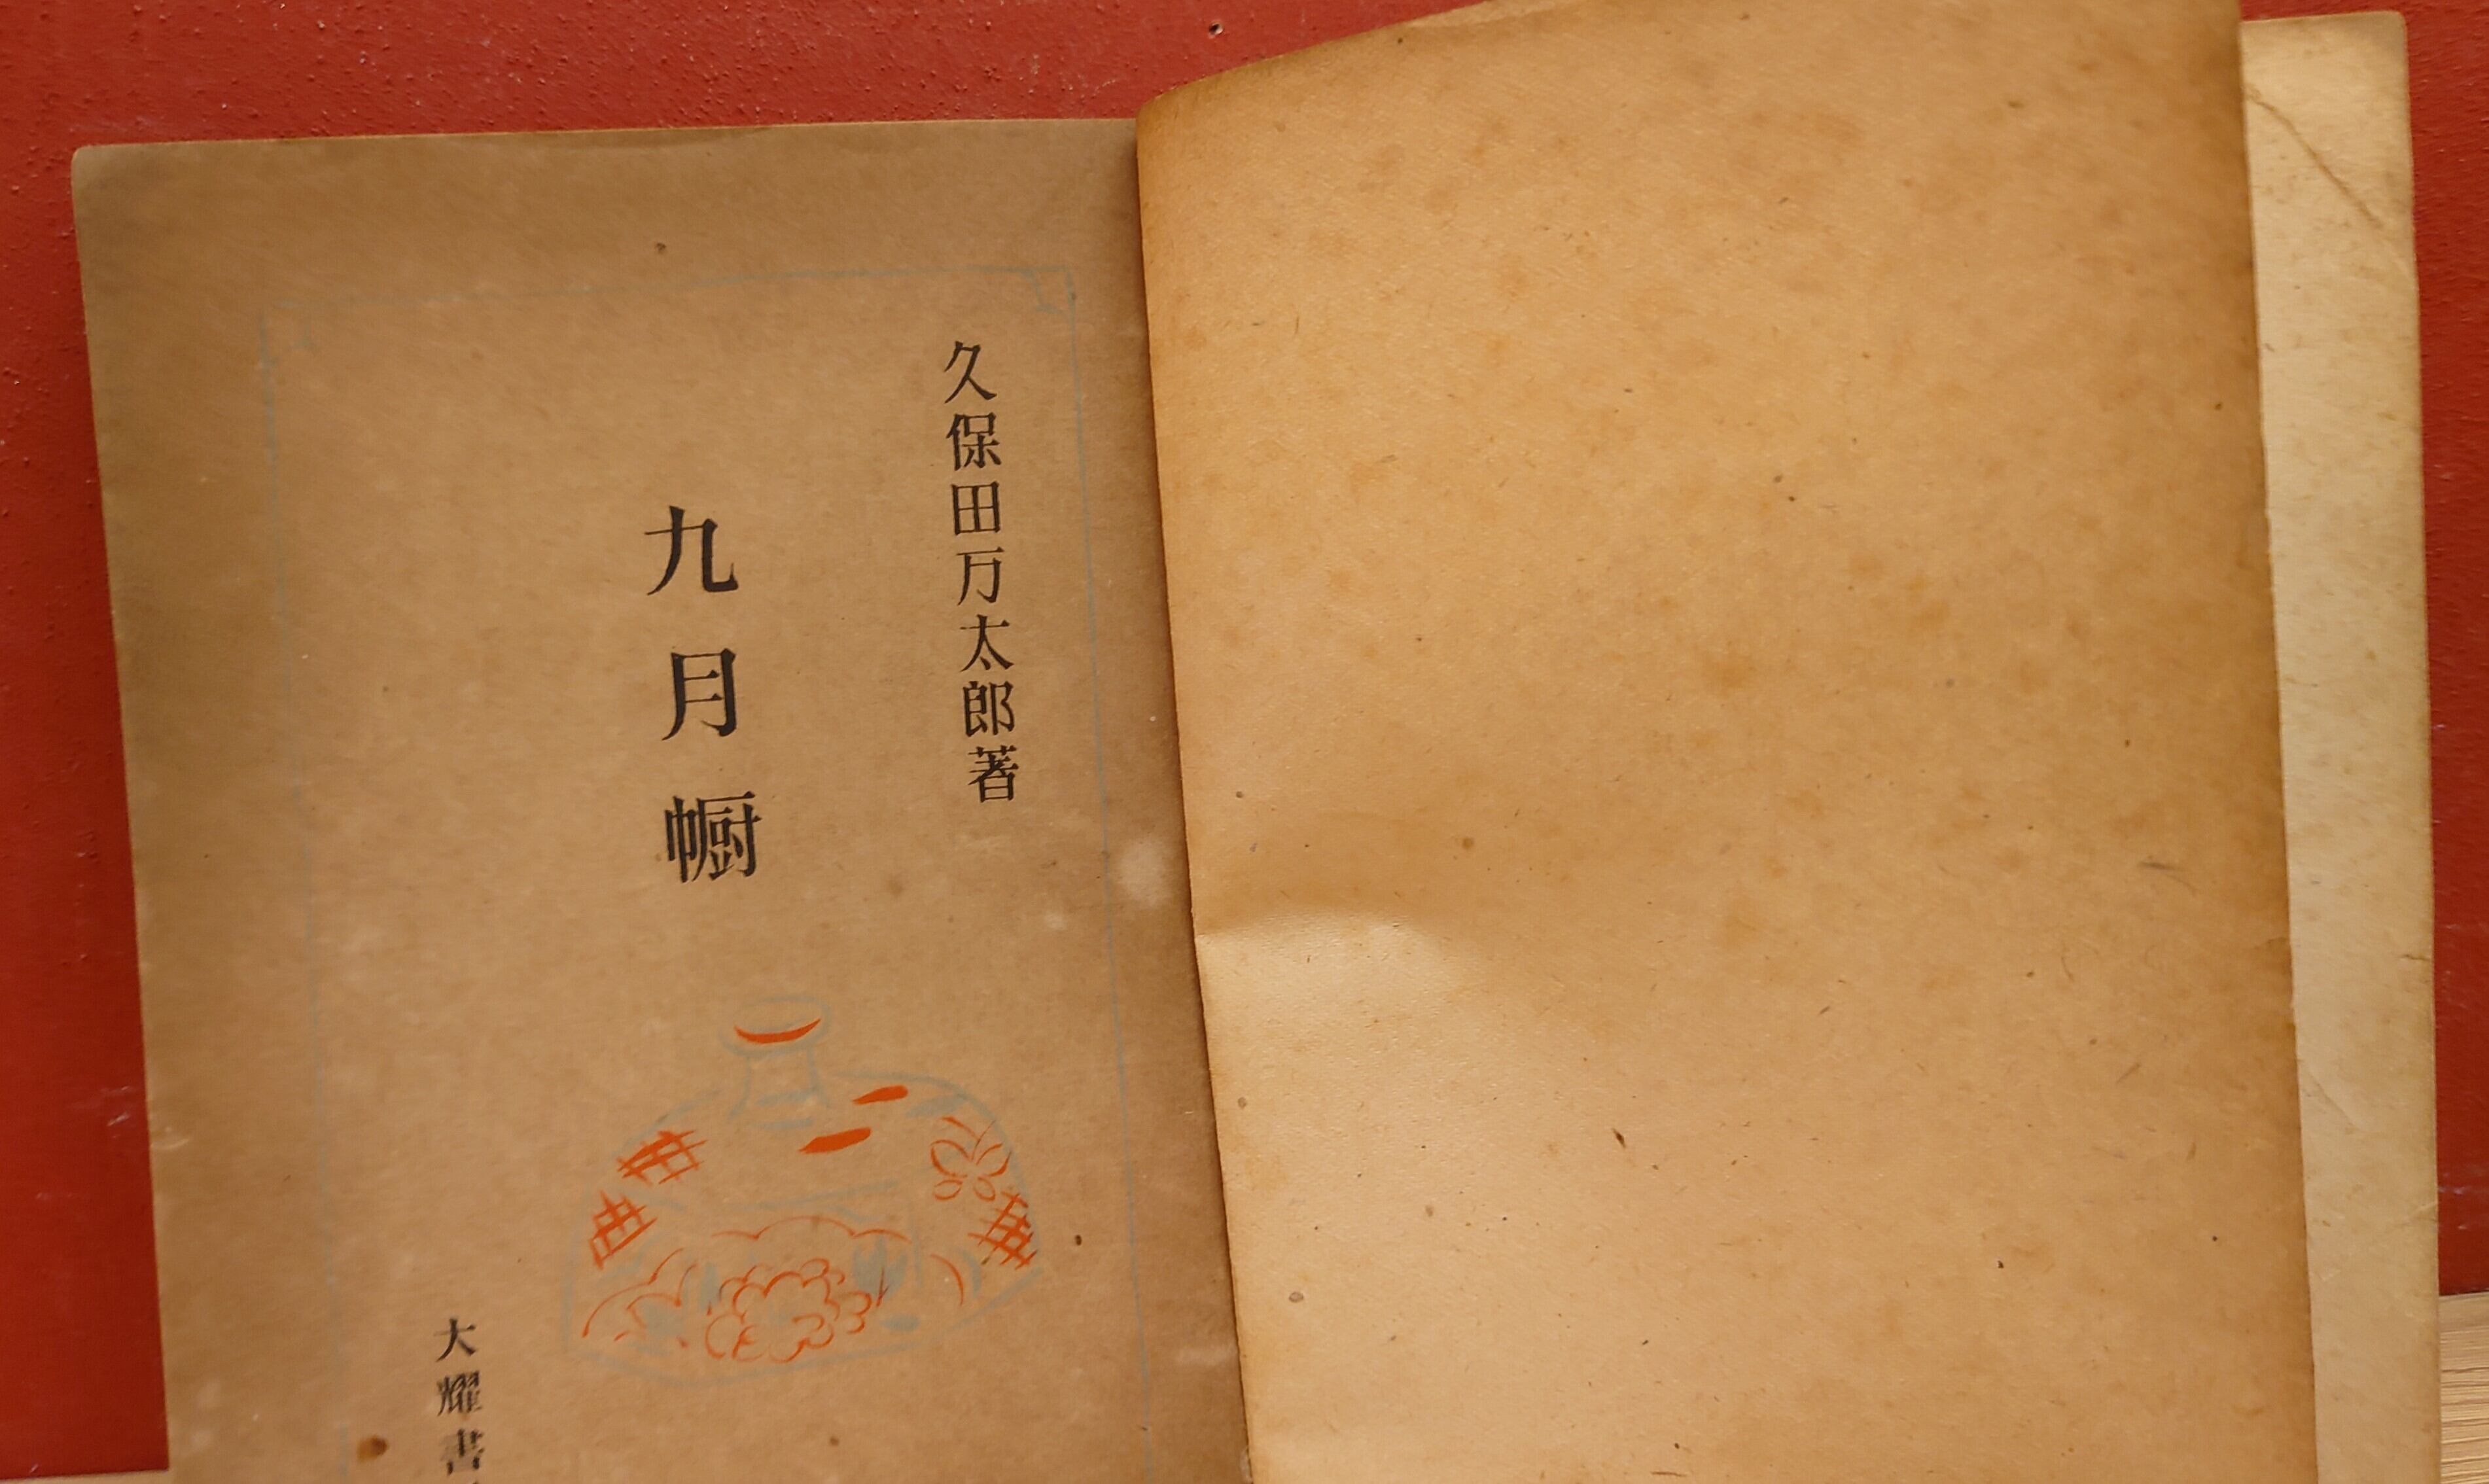 久保田万太郎著
九月㡡
大耀書